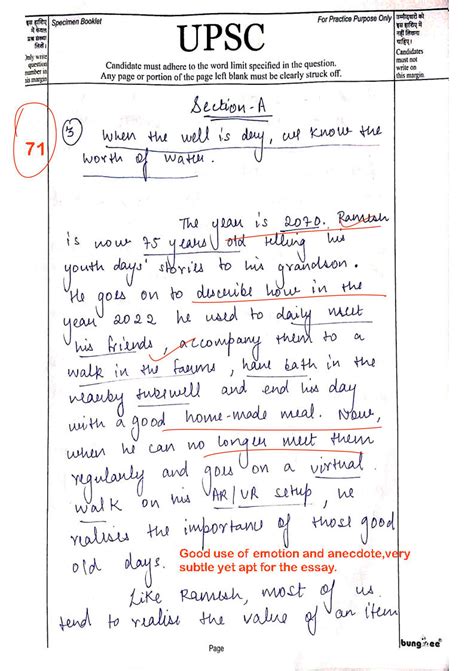 इस हाशिए
में केवल
प्रश्न संख्या
लिखें।
Only write
question
number in
this margin
Specimen Booklet
For Practice Purpose Only
उम्मीदवारों को
इस हाशिए में
नहीं लिखना
चाहिए।
Candidates
must not
write on
this margin
UPSC
Candidate must adhere to the word limit specified in the question.
Any page or portion of the page left blank must be clearly struck off.
Section-A
71
3 When the well is dry, we know the
worth of water.
The year is 2070. Ramesh
is now 75 years old telling his
youth days' stories to his grandson.
He goes on to describe how in the
year 2022 he used to daily meet
his friends, accompany them to a
walk in the farms, have bath in the
nearby tubewell and end his day
with a good home-made meal. Now,
when he can no longer meet them
regularly and goes on a virtual
walk on his AR/VR setup, he
realises the importance of those good
old days.
Good use of emotion and anecdote,very
subtle yet apt for the essay.
Like Ramesh, most of us
tend to realise the value of an item
Page